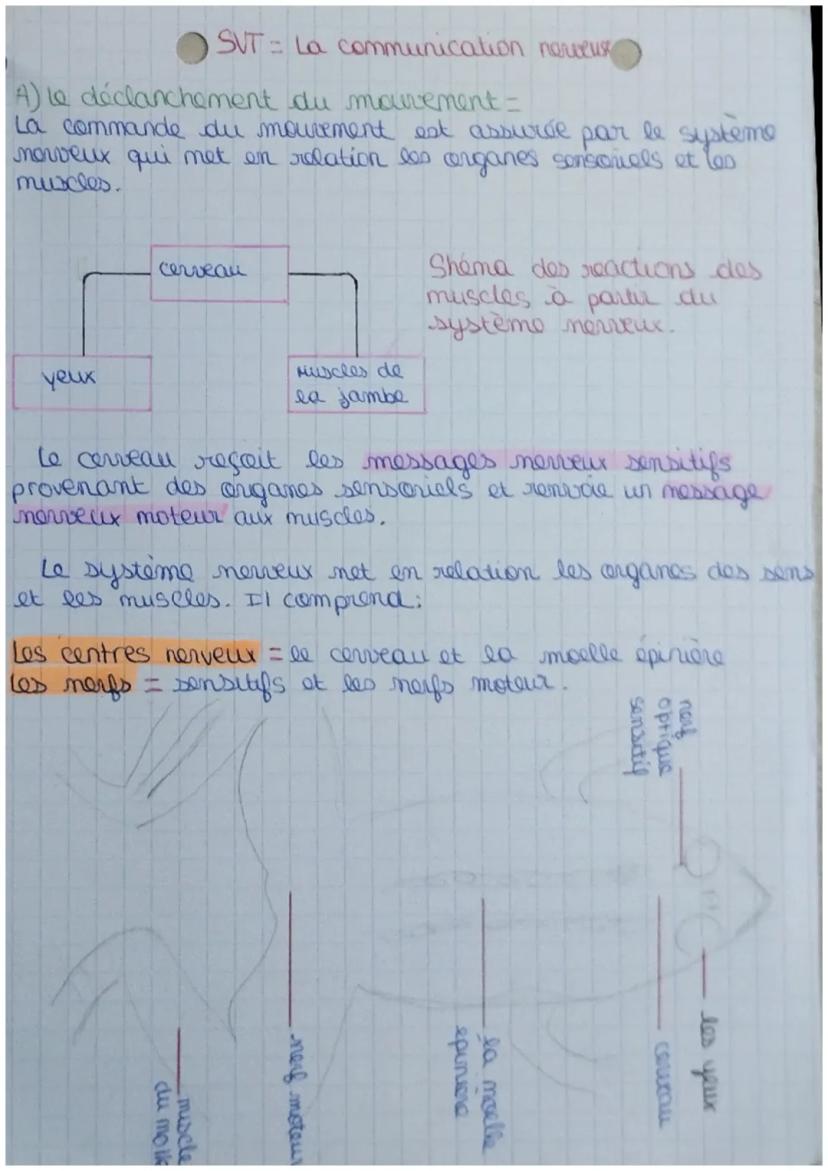 SVT = La communication nerveux
A) le déclanchement du mouvement =
La commande du mouvement est assurée par le système
nerveux qui met en relation les organes sensoriels et les
muscles.
cerveau
Shéma des reactions des
muscles à partir du
système nerveux.
yeux
Muscles de
la jambe
Le cerveau reçoit les messages nerveux sensitifs
provenant des organes sensoriels et renvoie un message
nerveux moteur aux muscles.
Le système nerveux met en relation les organes des sens
et les muscles. Il comprend :
Les centres nerveux = le cerveau et la moelle épinière
Les nerfs = sensitifs et les nerfs moteur.
nerf
optique
sensitif
les yeux
cerveau
la moelle
épinière
nerf moteur
muscle
du